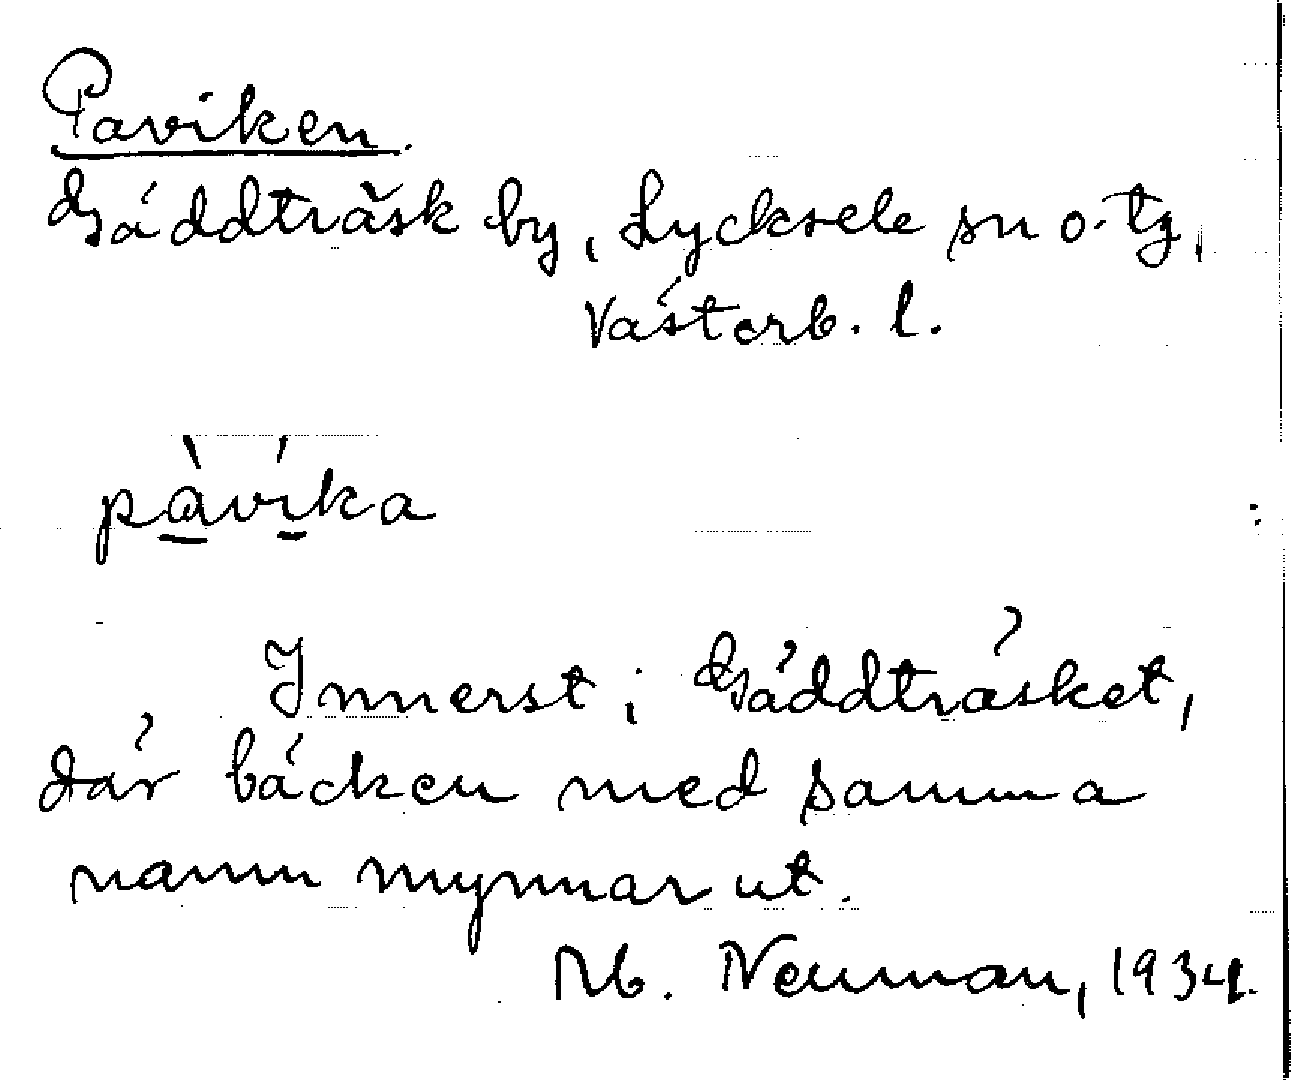 Paviken.
Gäddträsk by, Lycksele sn o. tg,
Västerb. l.
pàvíka
Innerst i Gäddträsket,
där bäcken med samma
namn mynnar ut.
Neuman, 1934.